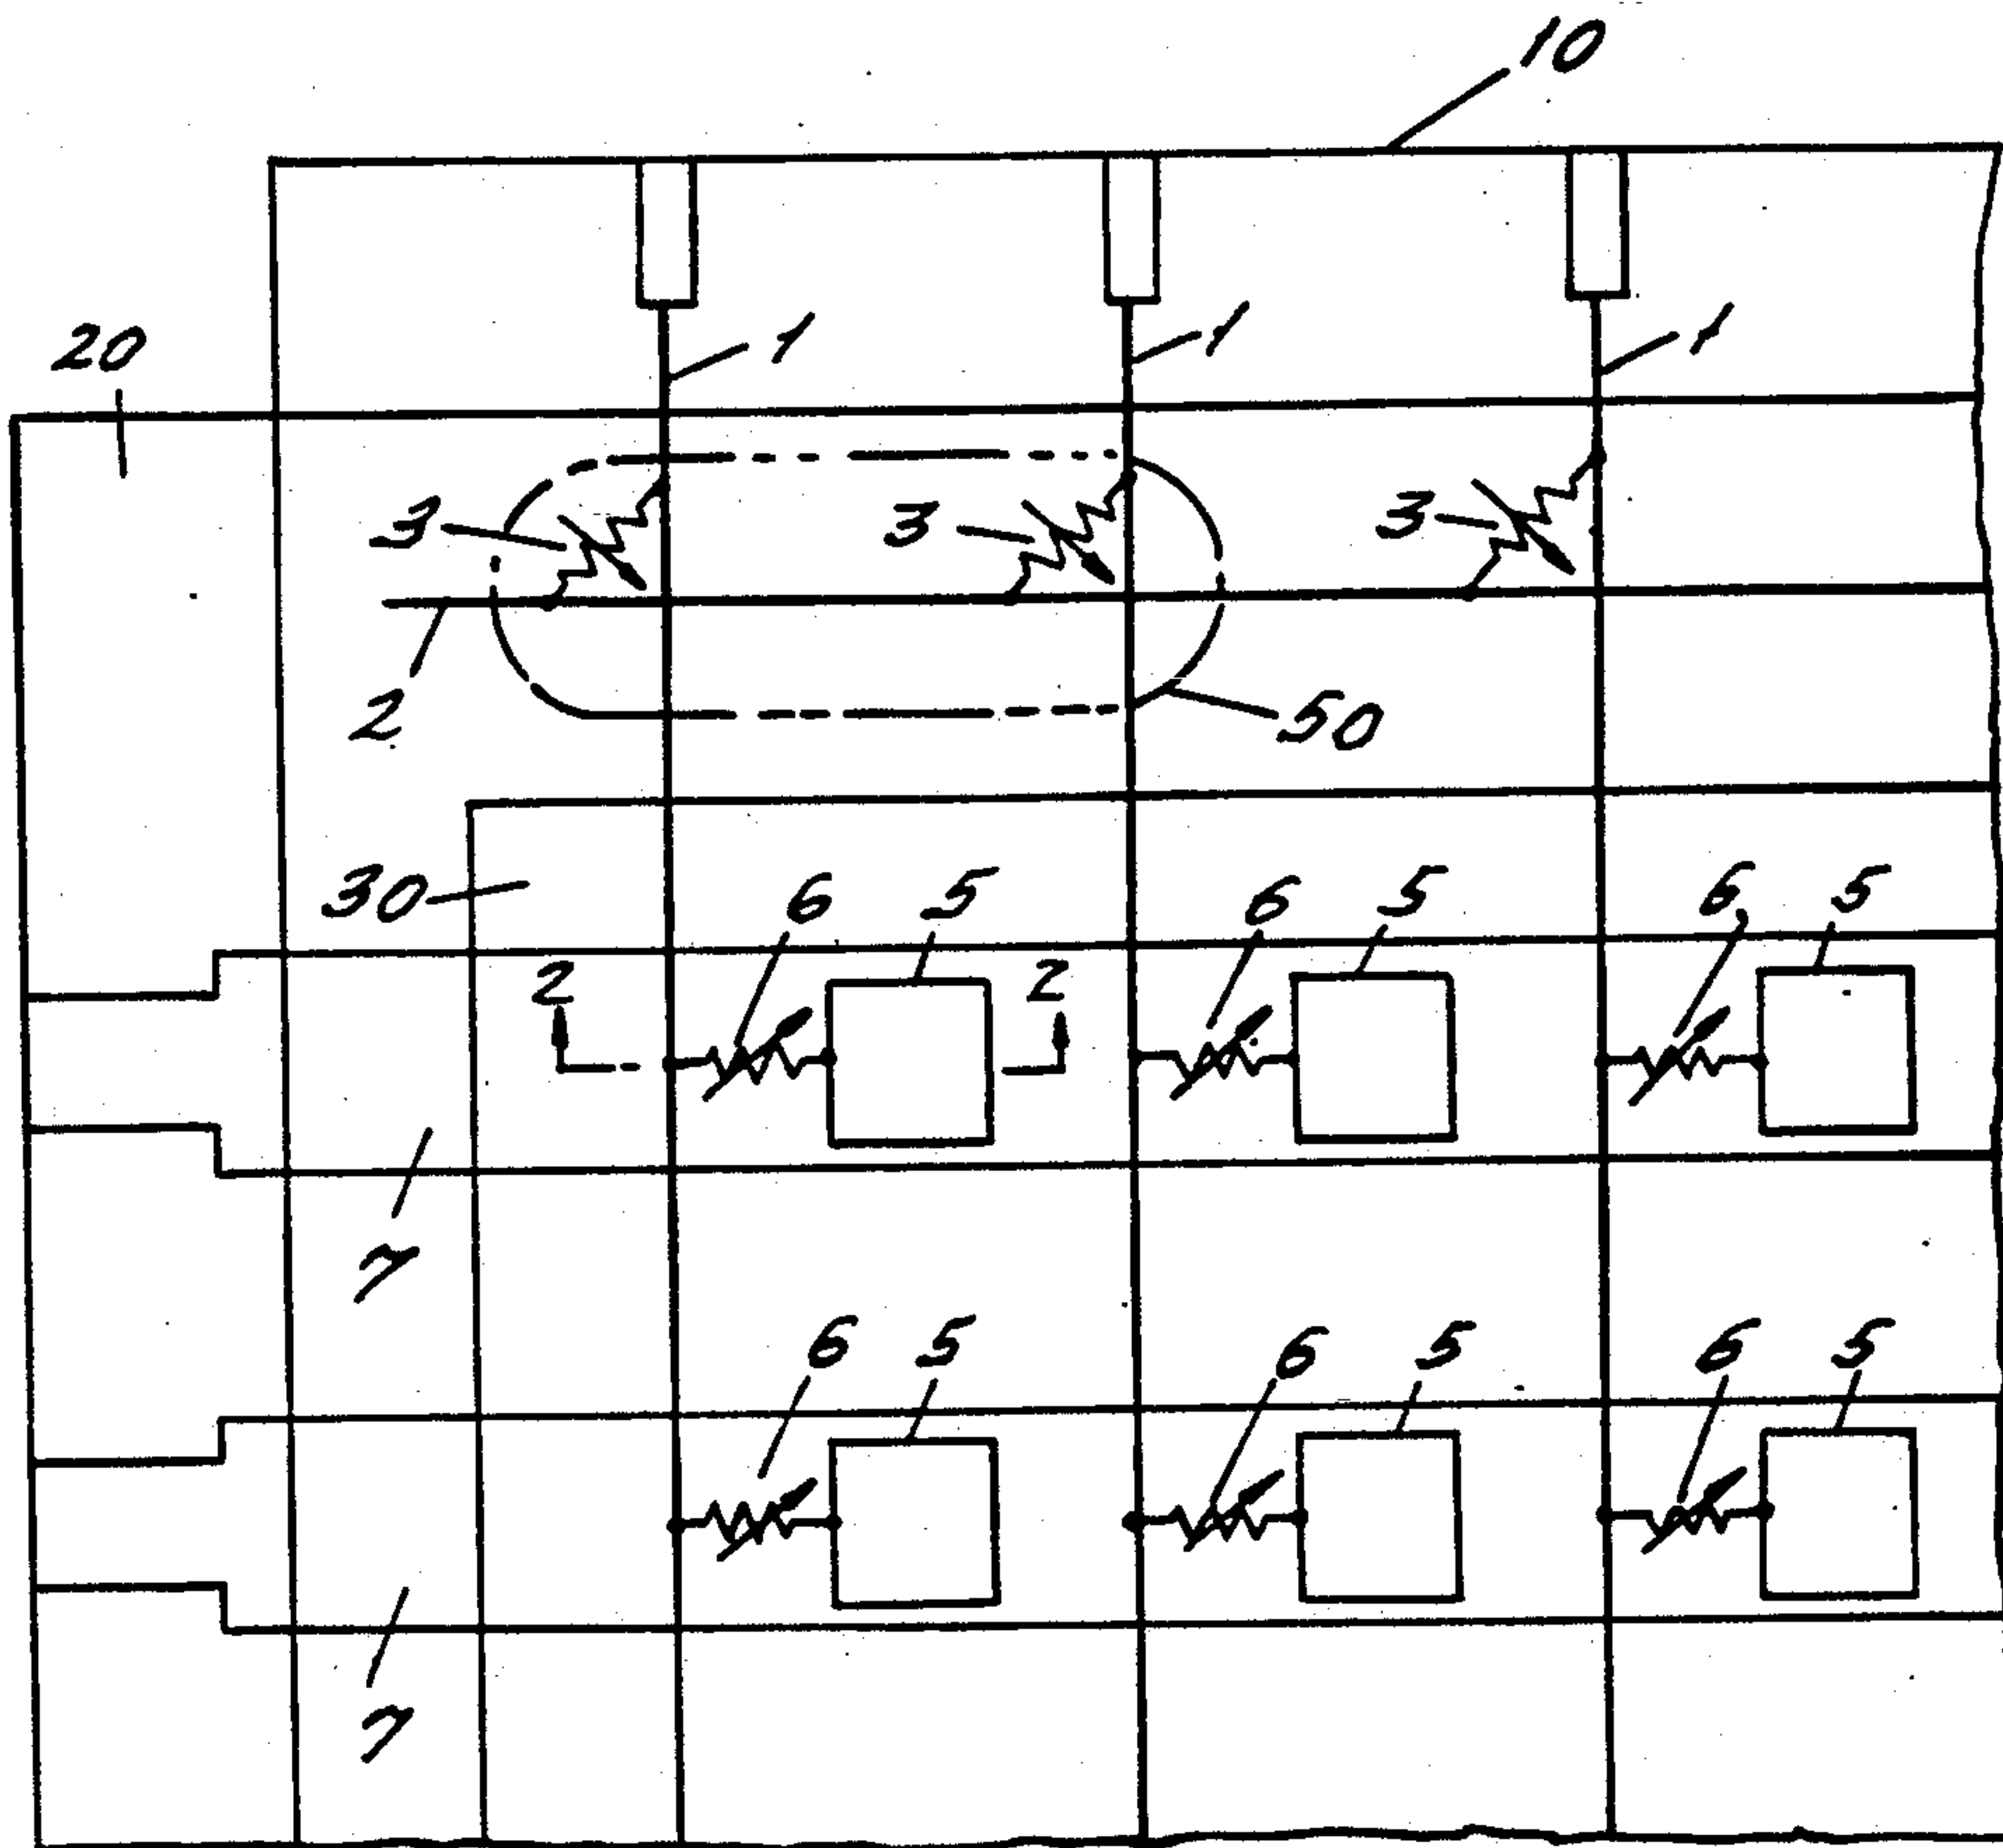 10
1 1 1
20
3 3 3
2
50
30 6 5 6 5 6 5
2 2
7
6 5 6 5 6 5
7